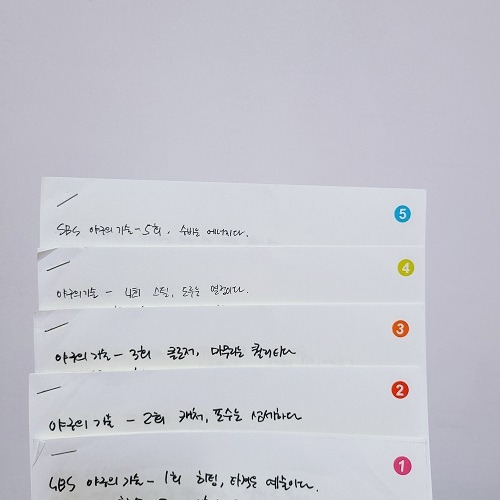 SBS 야구의 기술 - 5회, 수비는 에너지다.
5
야구의 기술 - 4회 스틸, 도루는 열정이다.
4
야구의 기술 - 3회 클로저, 마무리는 퀄리티다
3
야구의 기술 - 2회 캐처, 포수는 섬세하다
2
SBS 야구의 기술 - 1회 히팅, 타격은 예술이다.
1